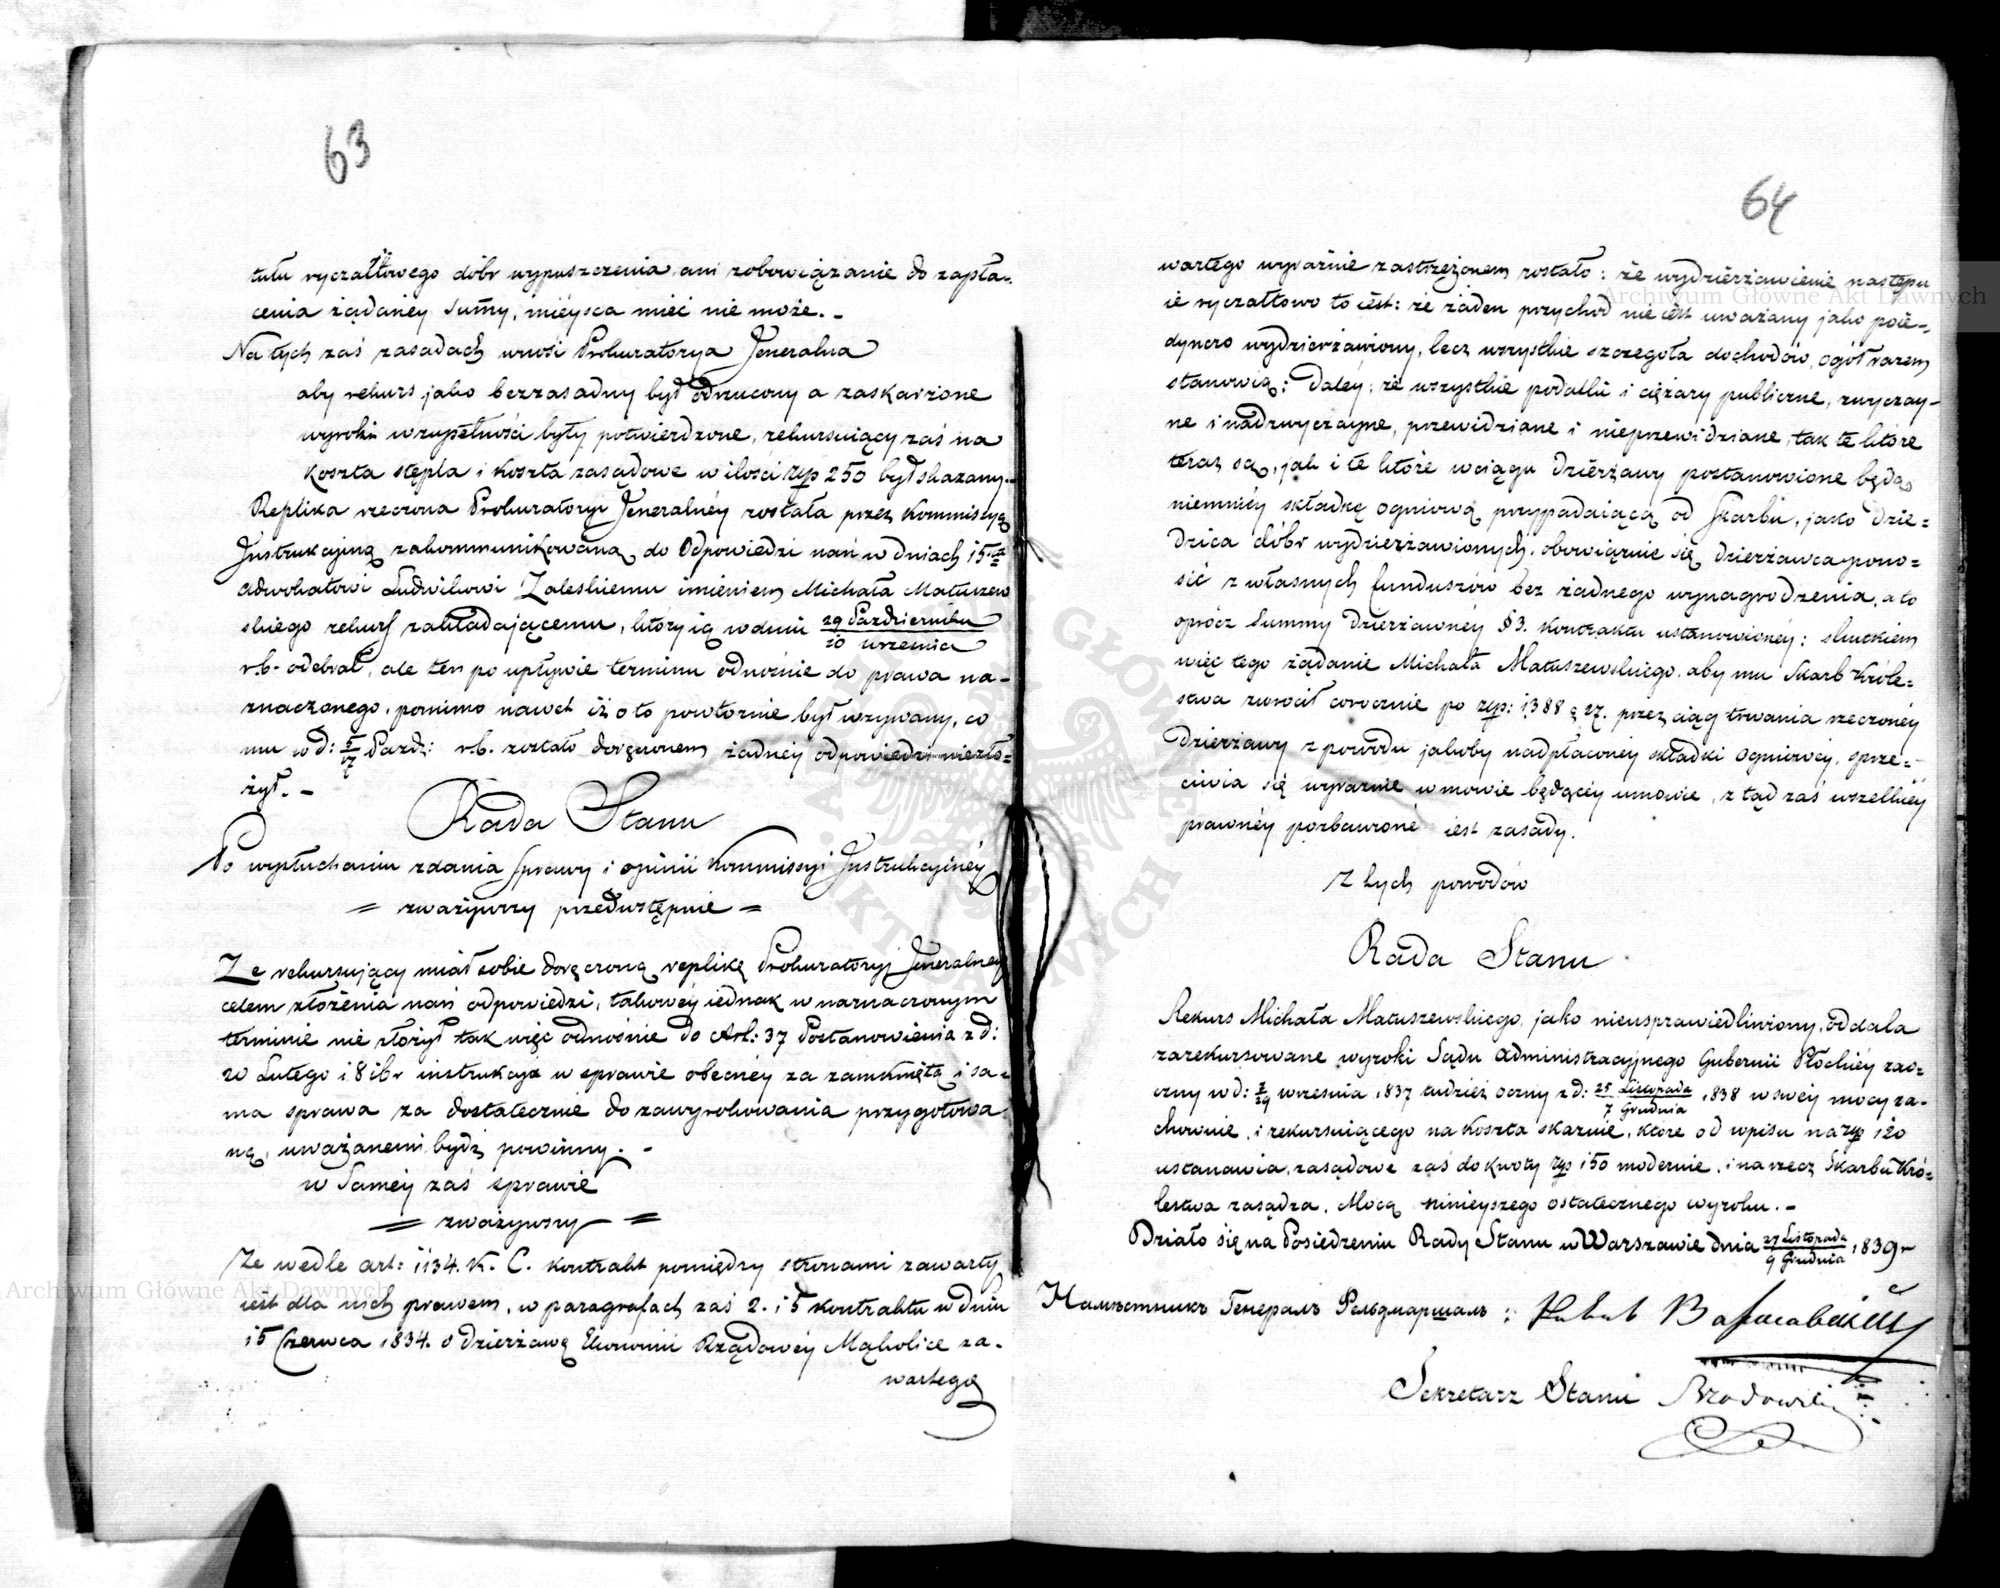 63
tułu ryczałtowego dóbr wypuszczenia, ani zobowiązanie do zapła-
cenia żądaney summy, mieysca mieć nie może. -
Na tych zaś zasadach wnosi Prokuratorya Jeneralna
aby rekurs jako bezzasadny był odrzucony a zaskarżone
wyroki w zupełności były potwierdzone, rekursuiący zaś na
koszta stępla i koszta zasądowe w ilości zp 250 był skazany. -
Replika rzeczona Prokuratoryi Jeneralnéy została przez Kommissyą
Instrukcyjną zakommunikowaną do Odpowiedzi nań w dniach 15
adwokatowi Ludwikowi Zaleskiemu imieniem Michała Matuszew
skiego rekurs zakładającemu, który ią w dniu 29 Października / 20 września
r. b. odebrał, ale ten po upływie terminu odnośnie do prawa na-
znaczonego, pomimo nawet iż o to powtórnie był wzywany, co
mu w d: 5/17 Paźdz: r. b. zostało doręczonem żadnéy odpowiedzi niezło-
żył. -
Rada Stanu
Po wysłuchaniu zdania sprawy i opinii Kommissyi Instrukcyinéy
= zważywszy przedwstępnie =
Ze rekursujący miał sobie doręczoną replikę Prokuratoryi Jeneralney
celem złożenia nań odpowiedzi, takowéy iednak w naznaczonym
terminie nie złożył tak więc odnośnie do Art: 37 Postanowienia z d:
20 Lutego 1816 r instrukcya w sprawie obecnéy za zamkniętą i sa-
ma sprawa za dostatecznie do zawyrokowania przygotowa
ną, uważanemi bydź powinny. -
w Saméy zaś sprawie
= zważywszy =
Ze wedle art: 1134. K. C. kontrakt pomiędzy stronami zawarty
iest dla nich prawem, w paragrafach zaś 2. i 5 kontraktu w dniu
15 Czerwca 1834. o dzierżawę Ekonomii Rządowéy Mąkolice za-
wartego
64
wartego wyraźnie zastrzeżonem zostało: że wydzierżawienie następu
ie ryczałtowo to iest: że żaden przychod nie iest uważany jako poie-
dynczo wydzierżawiony, lecz wszystkie szczegóła dochodów, ogół razem
stanowią: Daléy: że wszystkie podatki i ciężary publiczne, zwyczay-
ne i nadzwyczayne, przewidziane i nieprzewidziane, tak te które
teraz są, jak i te które wciągu dzierżawy postanowione będą
niemniéy składkę ogniową przypadaiącą od Skarbu, jako dzie-
dzica dóbr wydzierżawionych, obowiąznie się dzierżawca pono-
sić z własnych funduszów bez żadnego wynagrodzenia, a to
oprócz Summy Dzierżawnéy § 3. kontraktu ustanowionéy: skutkiem
więc tego żądanie Michała Matuszewskiego, aby mu Skarb Króle-
stwa zwrócił corocznie po zp: 1388 g 27. przez ciąg trwania rzeczonéy
Dzierżawy z powodu jakoby nadpłaconéy składki Ogniowéy, sprze-
ciwia się wyraźnie w mowie będącéy umowie, z tąd zaś wszelkiéy
prawnéy pozbawione iest zasady.
Z tych powodów
Rada Stanu
Rekurs Michała Matuszewskiego, jako nieusprawiedliwiony, oddala
zarekursowane wyroki Sądu administracyjnego Gubernii Płockiéy zao-
czny w d: 7/19 września 1837 tudzież oczny z d: 25 Listopada / 7 Grudnia 1838 w swéy mocy za-
chowuie, i rekursuiącego na Koszta skazuie, które od wpisu na zp 120
ustanawia, zasądowe zaś do kwoty zp 150 moderuie, i na rzecz Skarbu Kró-
lestwa zasądza, Mocą ninieyszego ostatecznego wyroku. -
Działo się na Posiedzeniu Rady Stanu w Warszawie dnia 27 Listopada / 9 Grudnia 1839 r
Намѣстникъ Генералъ Фельдмаршалъ:
Sekretarz Stanu Brzozowski
Archiwum Główne Akt Dawnych
Archiwum Główne Akt Dawnych